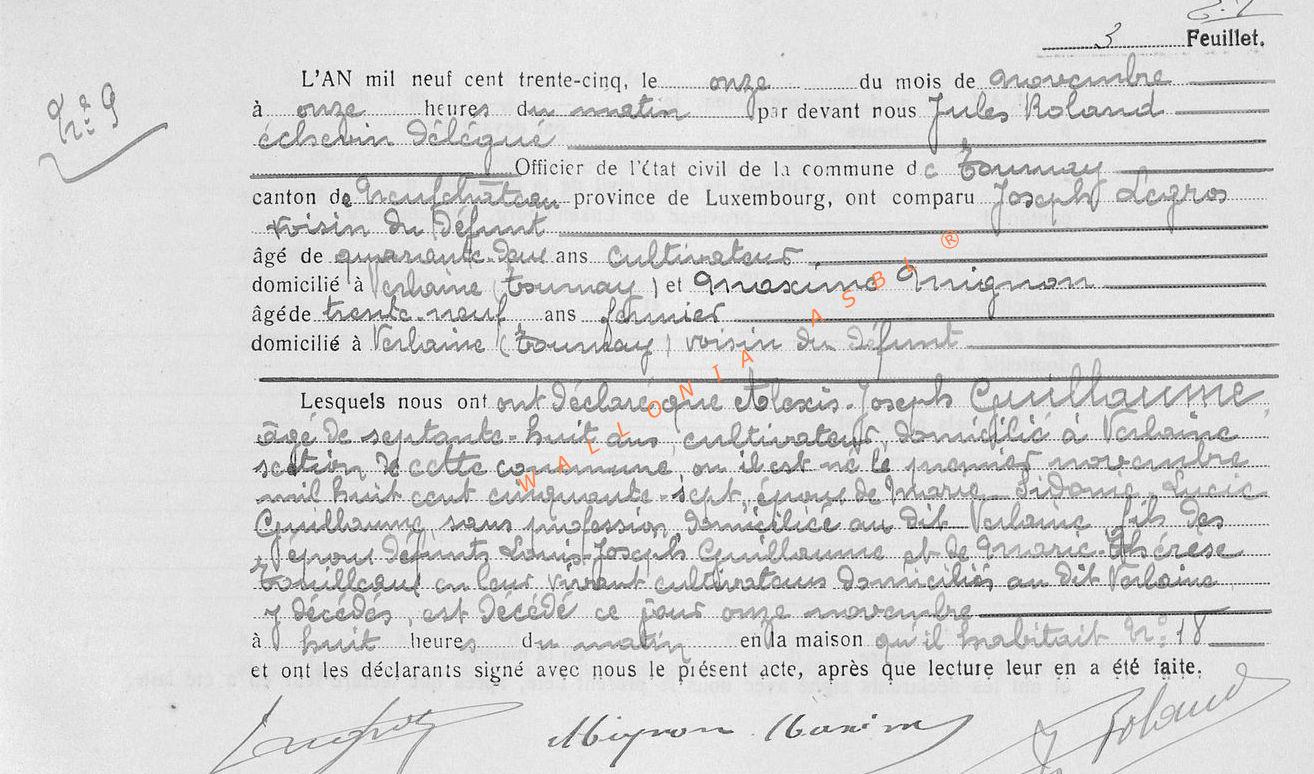 3 Feuillet.
N° 9
L'AN mil neuf cent trente-cinq, le onze du mois de novembre
à onze heures du matin par devant nous Jules Roland
échevin délégué
Officier de l'état civil de la commune de Tournay
canton de Neufchâteau province de Luxembourg, ont comparu Joseph Legros
voisin du défunt
âgé de quarante-deux ans cultivateur,
domicilié à Verlaine (Tournay) et Maxime Mignon
âgé de trente-neuf ans fermier
domicilié à Verlaine (Tournay) voisin du défunt
Lesquels nous ont ont déclaré que Alexis-Joseph Guillaume,
âgé de septante-huit ans, cultivateur, domicilié à Verlaine
section de cette commune, où il est né le premier novembre
mil huit cent cinquante-sept, époux de Marie-Sidonie-Lucie
Guillaume sans profession, domiciliée au dit Verlaine, fils des
époux défunts Louis-Joseph Guillaume et de Marie-Thérèse
en leur vivant cultivateurs domiciliés au dit Verlaine,
y décédés, est décédé ce jour onze novembre
à huit heures du matin en la maison qu'il habitait N° 18
et ont les déclarants signé avec nous le présent acte, après que lecture leur en a été faite.
Mignon Maxime
J Roland
WALLONIA ASBL ®